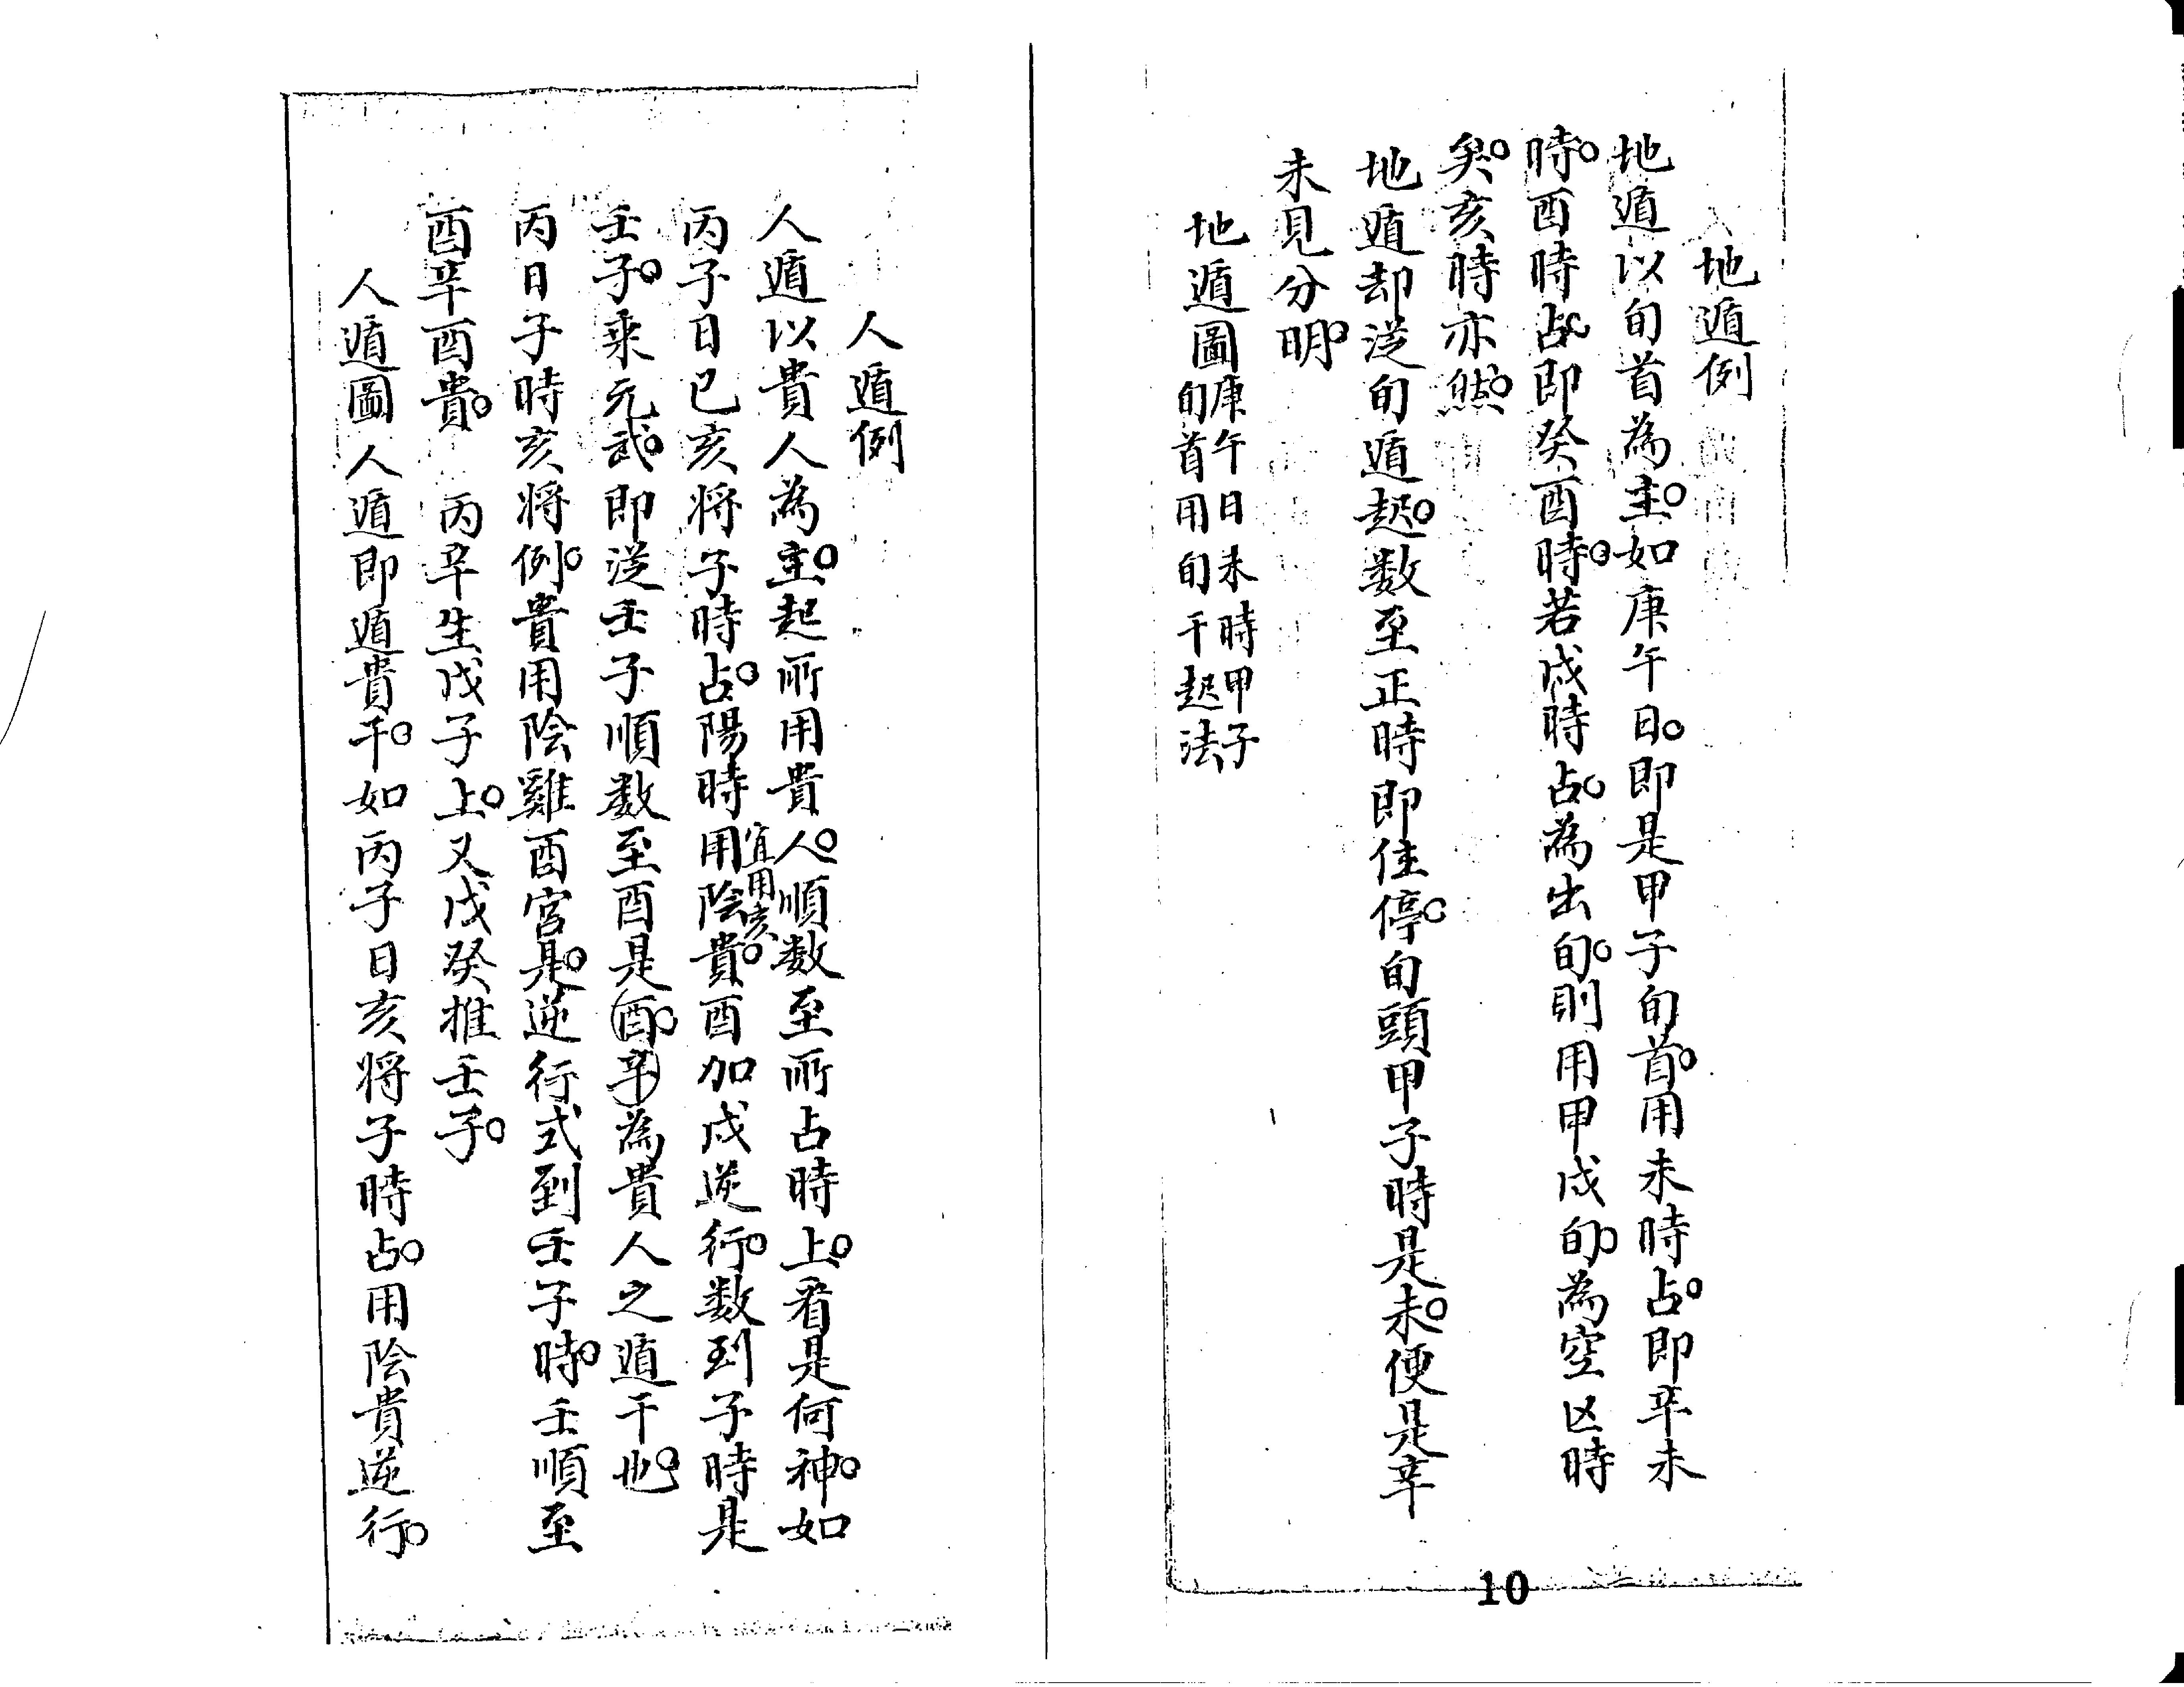 地遁例
地遁以旬首為主。如庚午日。即是甲子旬首。用未時占。即辛未
時。酉時占。即癸酉時。若戌時占。為出旬。則用甲戌旬。為空亡時
矣。亥時亦然。
地遁却従旬遁起。数至正時即住停。旬頭甲子時是未。便是辛
未見分明。
地遁圖
庚午日未時甲子
旬首用旬干起法
10
人遁例
人遁以貴人為主。起所用貴人。順数至所占時上。看是何神。如
丙子日巳亥将子時占。陽時用陰貴。酉加戌逆行。数到子時是
宜用亥
壬子。乘元武。即従壬子順数至酉是酉。辛為貴人之遁干也。
丙日子時亥将例。貴用陰雞酉宮是。逆行式到壬子時。壬順至
酉辛酉貴。 丙辛生戊子上。又戊癸推壬子。
人遁圖人遁即遁貴干。如丙子日亥将子時占。用陰貴逆行。